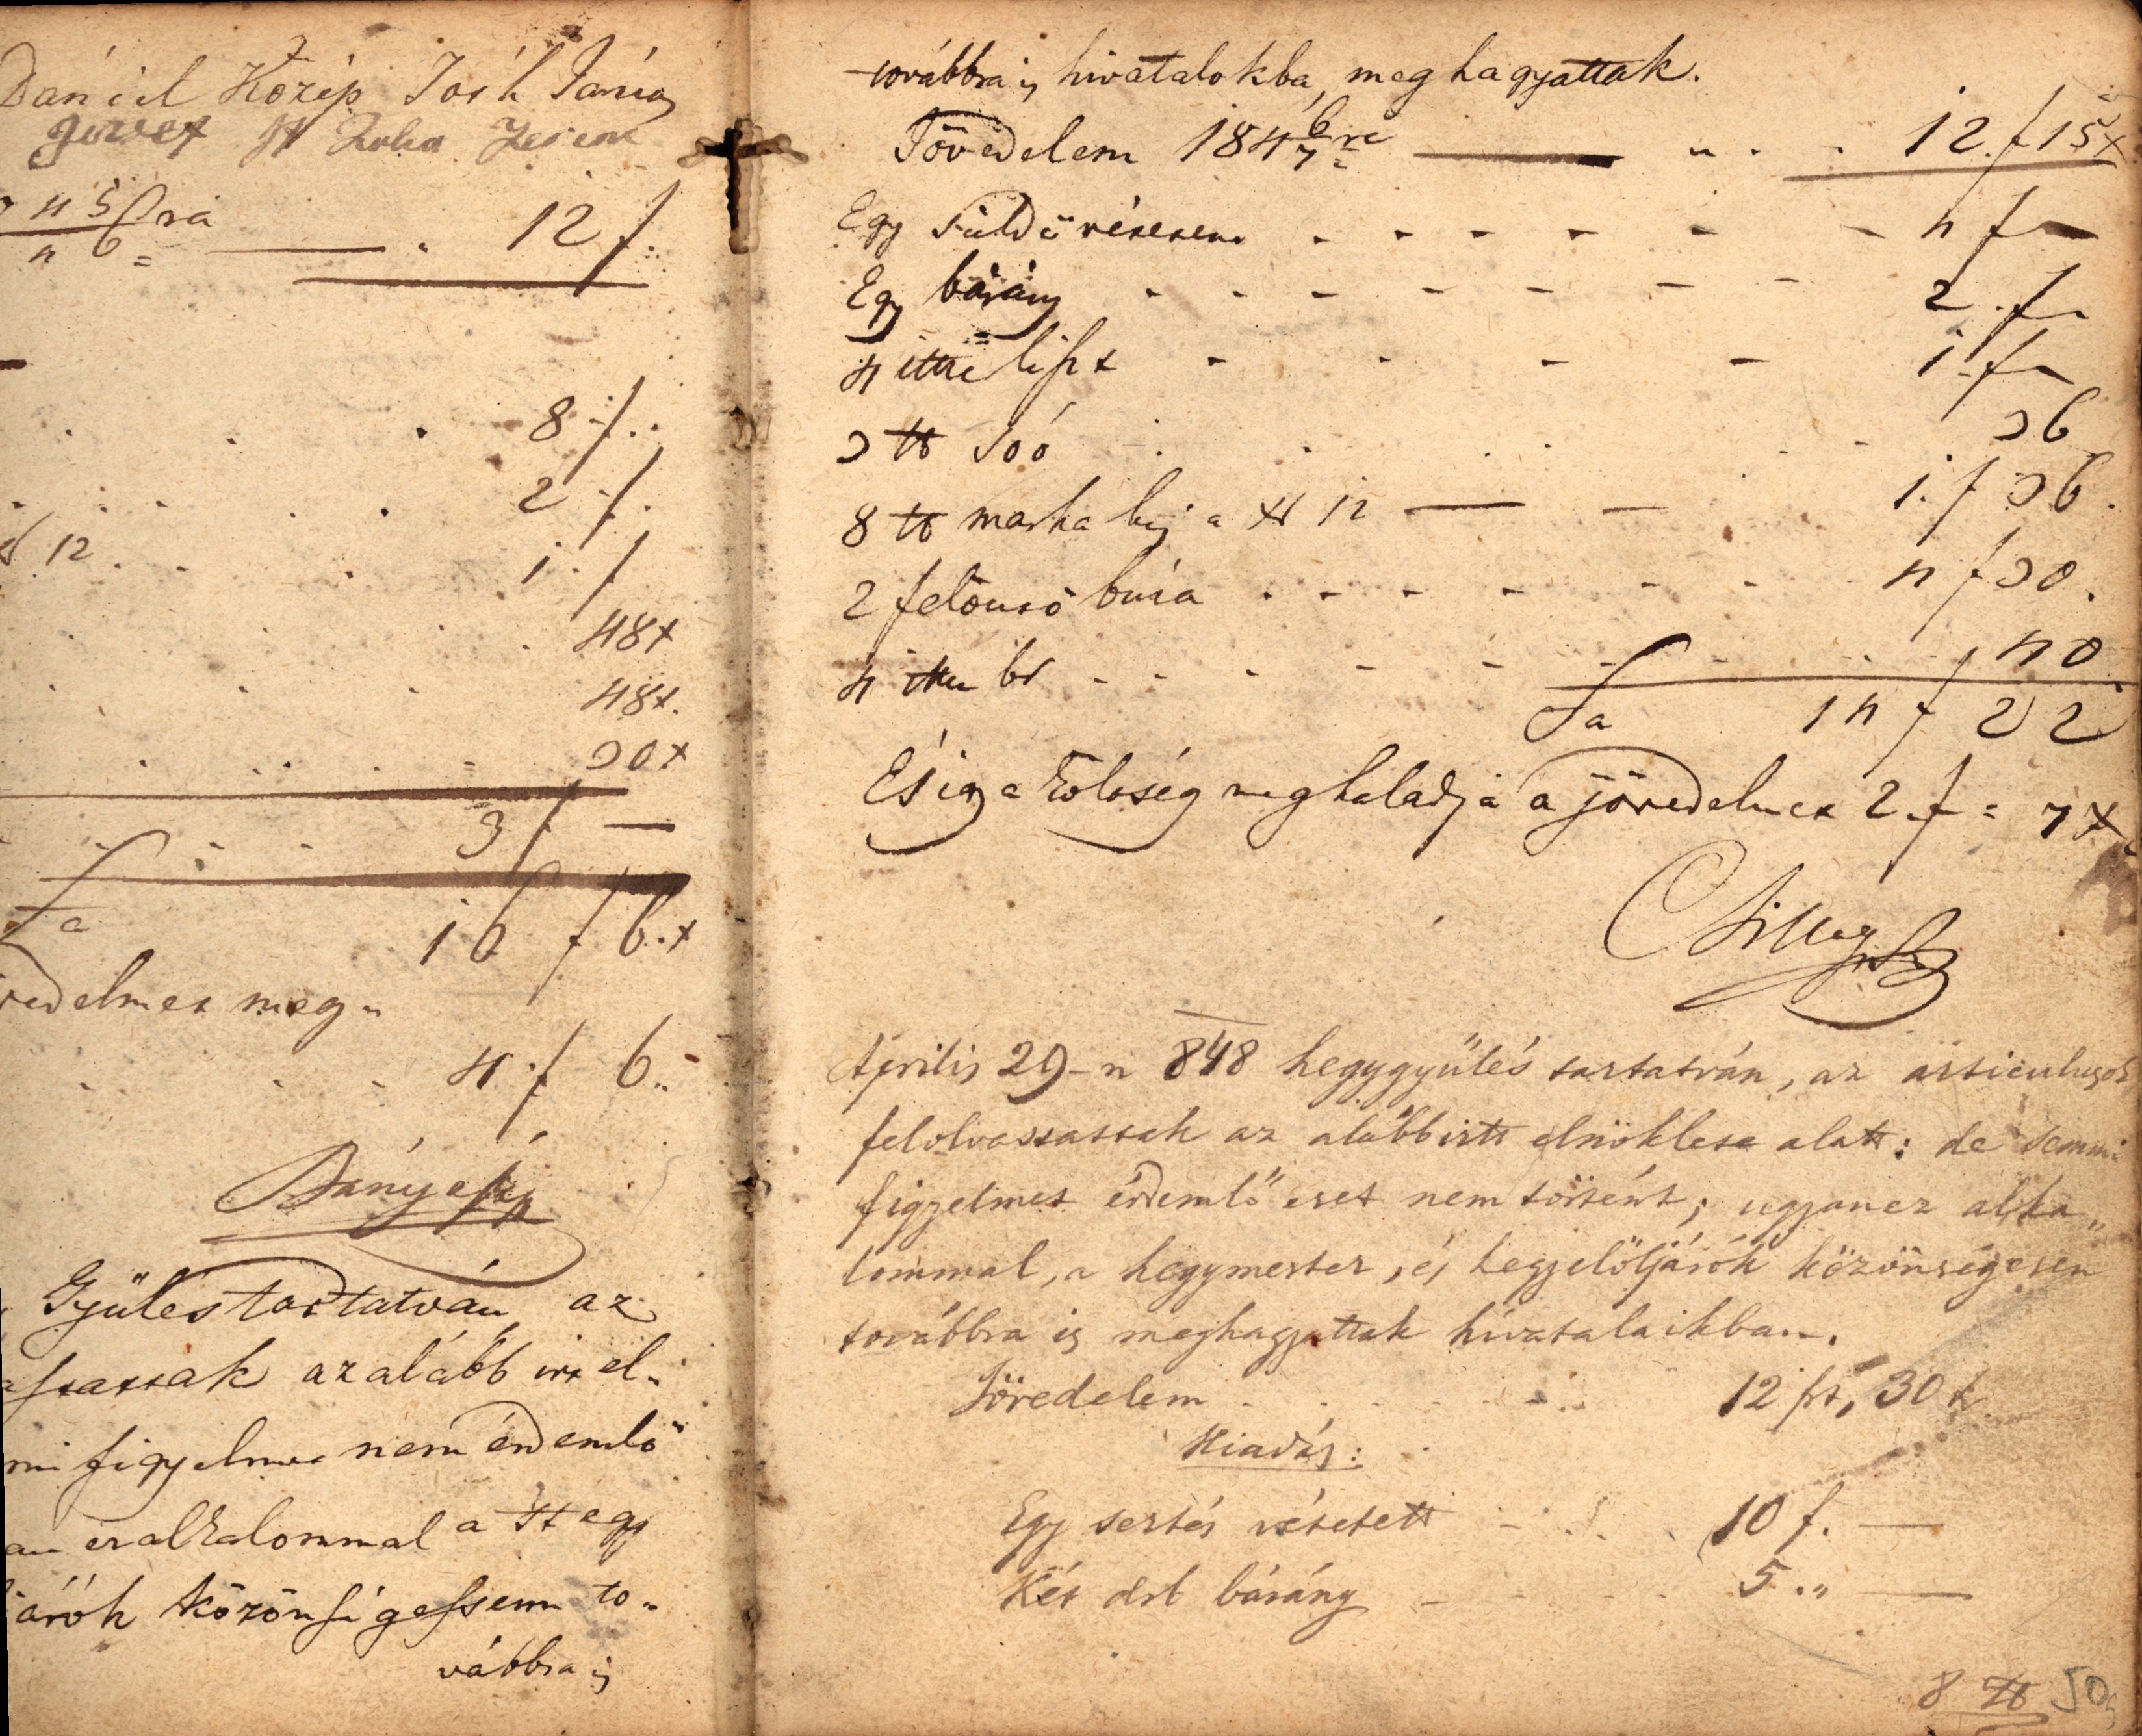 Dániel Közép Joóh János
184 5/6 ra 12 f.
8 f.
2 f.
xr 12 1. f
48x
48x.
30x
3 f —
Sa 16 f 6.x
vedelmet meg-
4 f 6.
Bányay
Gyülés tartatván, az
assassak az alább irt el-
mi figyelmet nem érdemlő
an ez alkalommal a H egy
árók közönségessenn to-
vábbra is
továbbra is hivatalokba, meghagyattak.
Jövedelem 184 6/7 re 12. f 15x
Egy süldő vétetett 4 f —
Egy bárány 2. f
4 itze liszt 1. f
3 tt Soó 36
8 tt marha hus a xr 12 1. f 36.
2 felönsö buza 4 f 30.
4 itze bor 40
Sa 14 f 22
És igy a költség meghaladja a jövedelmet 2. f = 7x
Csillag
Április 29-n 848 hegygyűlés tartatván, az articulusok
felolvastattak az alább irtt elnöklete alatt: de semmi
figyelmet érdemlő eset nem történt; ugyan ez alka„
lommal, a hegymester, és hegyelöljárók közönségesen
továbbra is meghagyattak hivatalaikban.
Jövedelem 12 frt, 30 k
Kiadás:
Egy sertés vétetett 10 f. —
Két drb bárány 5 „ —
8 tt 50